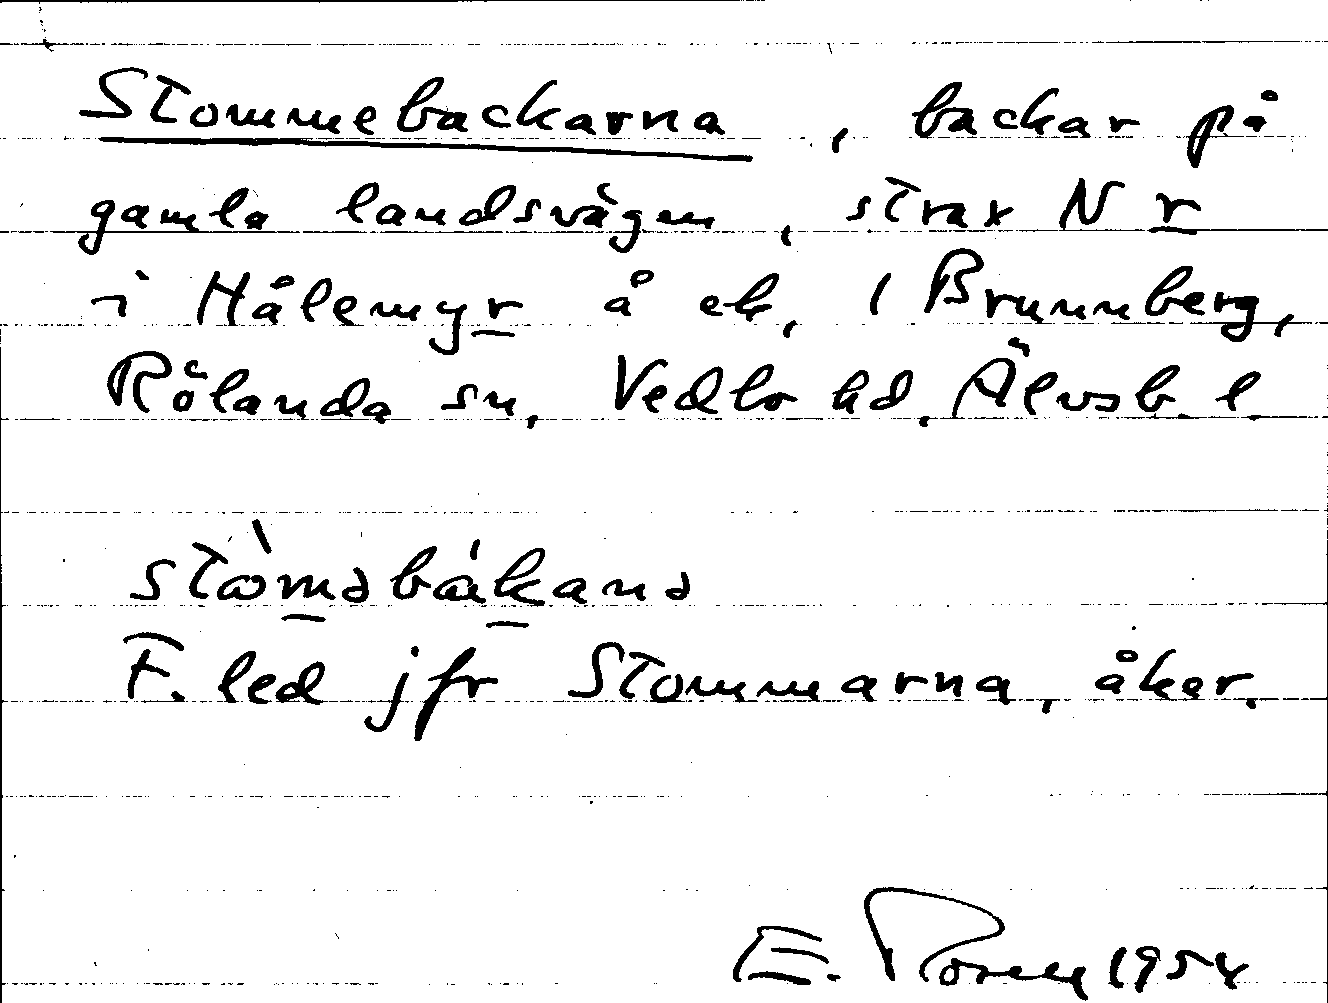 Stommebackarna, backar på
gamla landsvägen, strax N r
i Hålemyr å ek, 1 Brunnberg,
Rölanda sn, Vedbo hd, Älvsb. l.
stòməbákanə
F. led jfr Stommarna, åker.
E. 1954